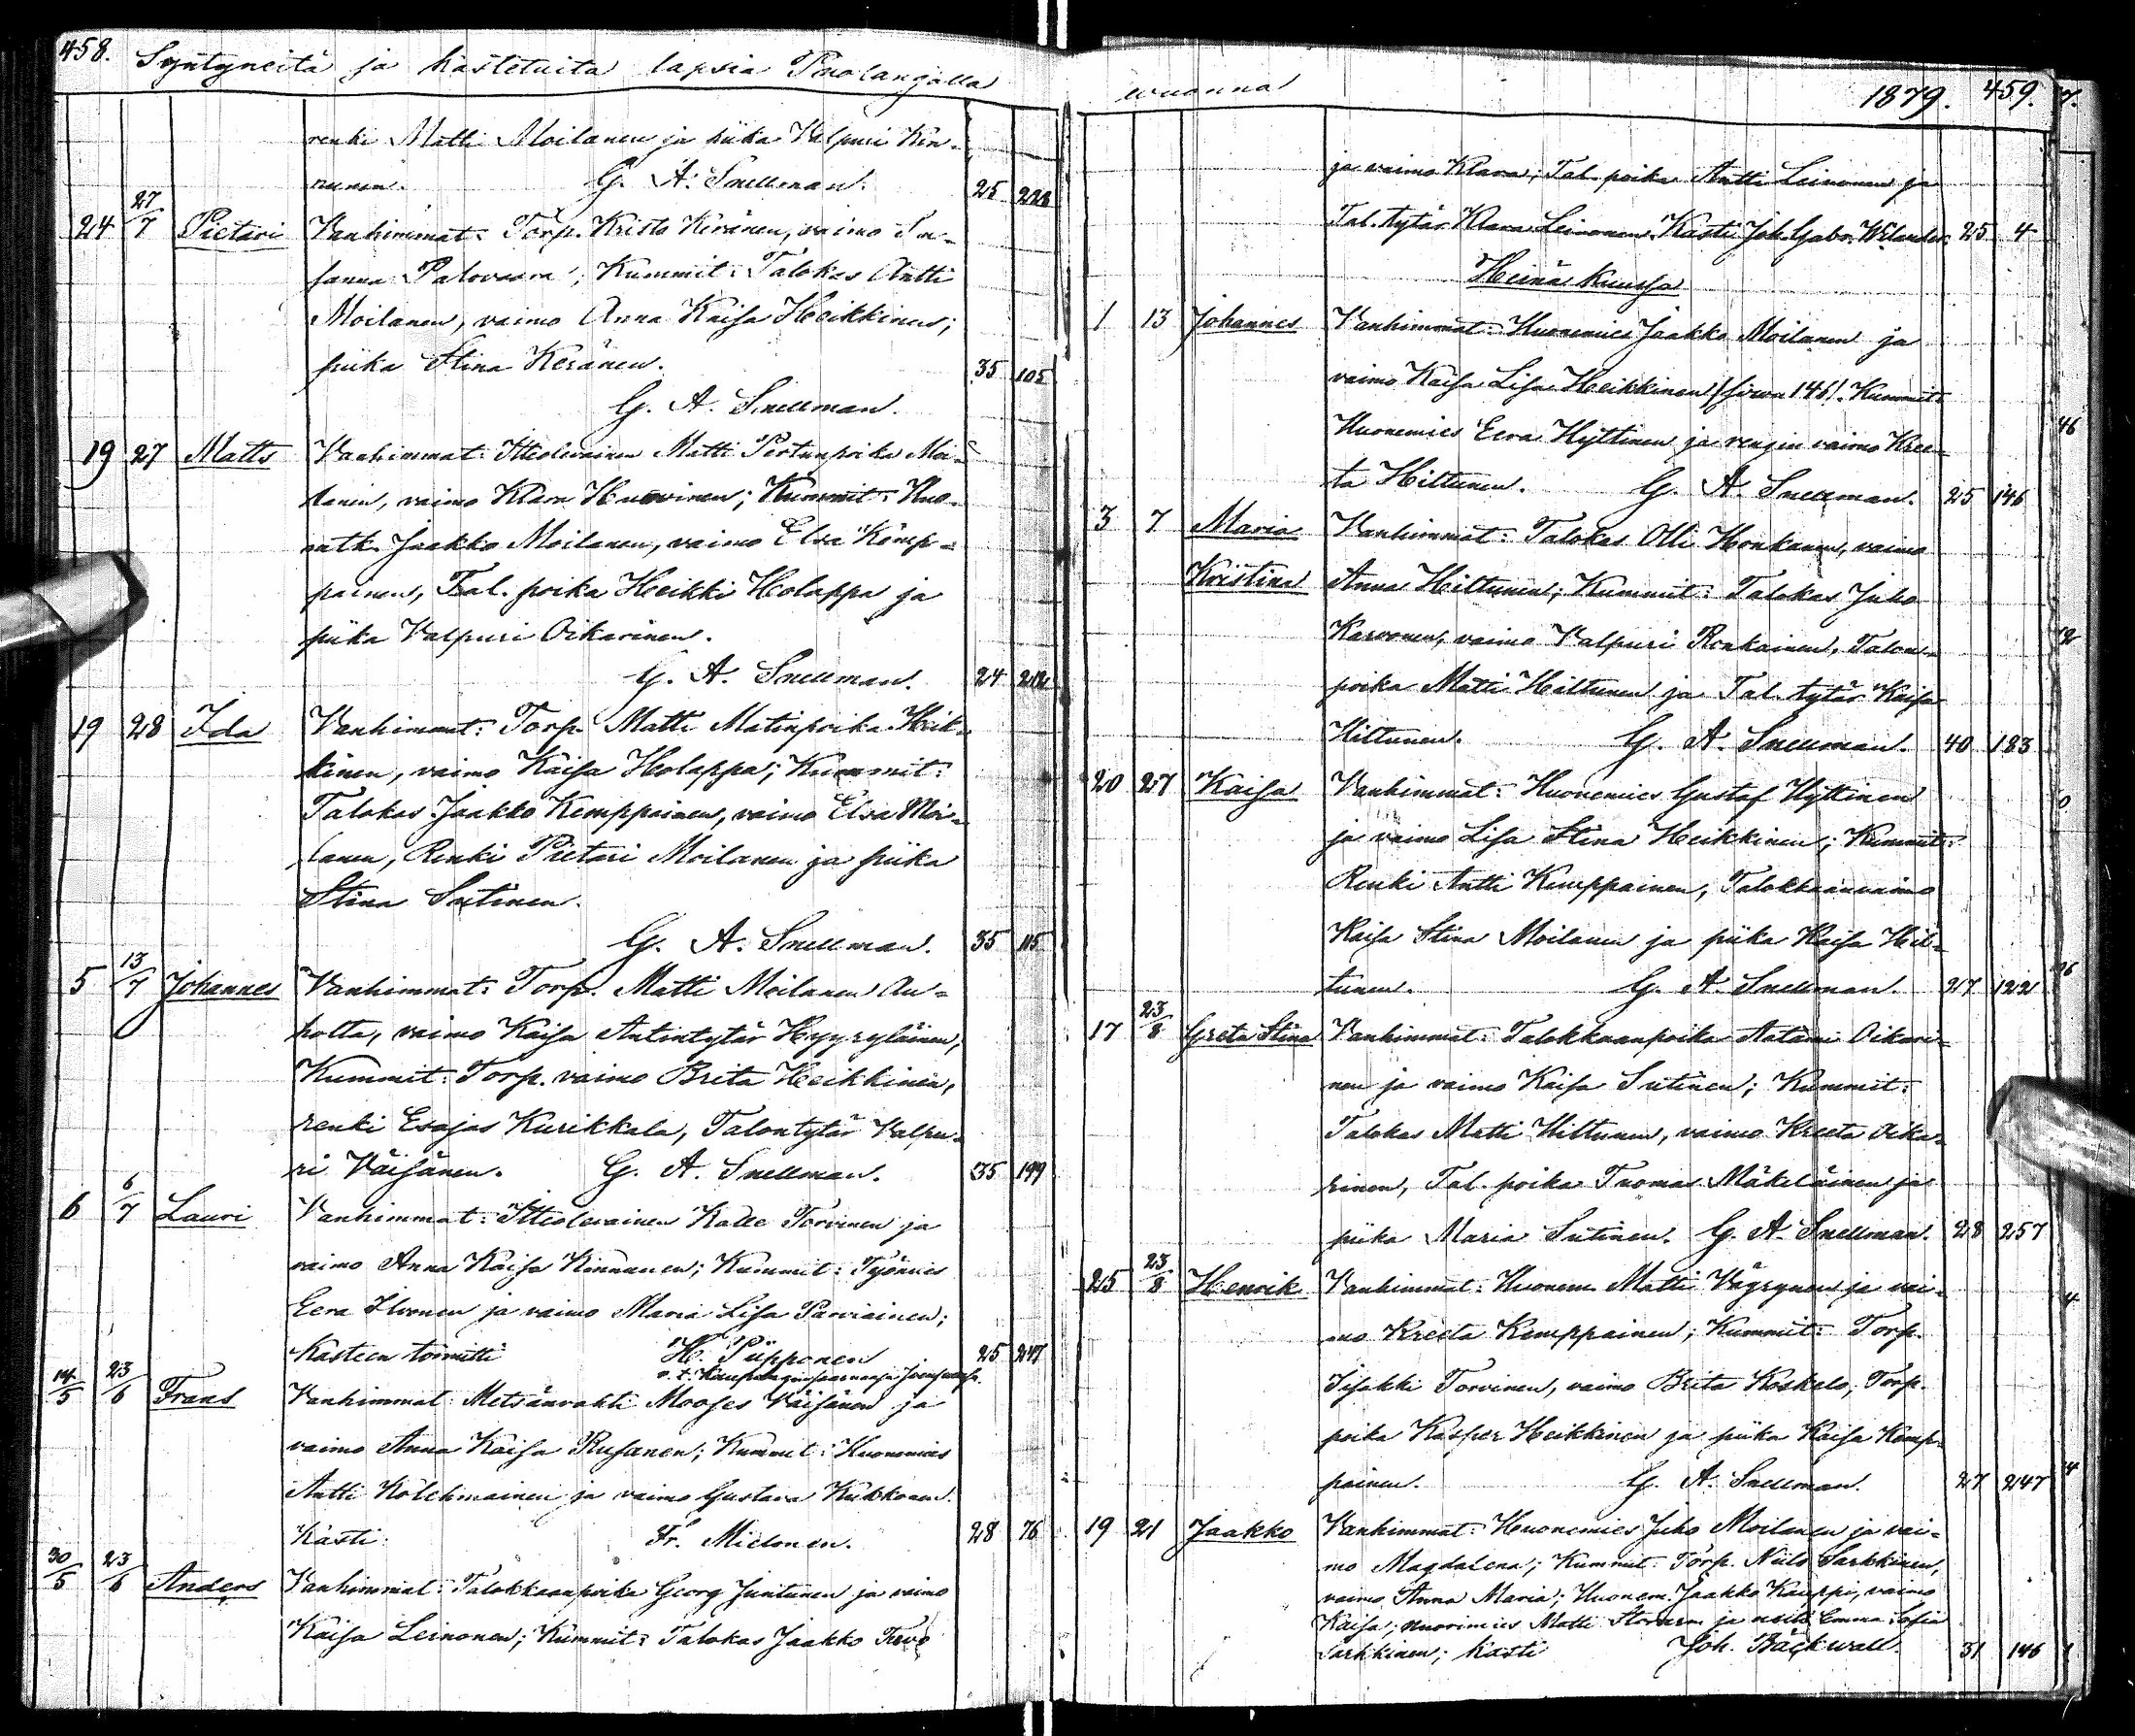 458. Syntyneitä ja kastetuita lapsia Puolangalla
renki Matti Moilanen ja piika Valpuri Kin-
nunen. G. A. Snellman. 25 228
24 27/7 Pietari Vanhimmat: Torp. Kristo Keränen, vaimo Su-
sanna Palovaara; Kummit: Talokas Antti
Moilanen, vaimo Anna Kaisa Heikkinen;
piika Stina Keränen. 35 105
G. A. Snellman.
19 27 Matts Vanhimmat: Itteolevainen Matti Pertunpoika Moi-
lanen, vaimo Klara Huovinen; Kummit: Huo-
Jaakko Moilanen, vaimo Elsa Kemp-
painen, Tal. poika Heikki Holappa ja
piika Valpuri Oikarinen.
G. A. Snellman. 24 212
19 28 Ida Vanhimmat: Torp. Matti Matinpoika Heik-
kinen, vaimo Kaisa Holappa; Kummit:
Talokas Jaakko Kemppainen, vaimo Elsa Moi-
lanen, Renki Pietari Moilanen ja piika
Stina Sutinen.
G. A. Snellman. 35 115
5 13/7 Johannes Vanhimmat: Torp. Matti Moilanen Au-
holta, vaimo Kaisa Antintytär Hyyryläinen,
Kummit: Torp. vaimo Brita Heikkinen,
renki Esajas Kurikkala, Talontytär Valpu-
ri Väisänen. G. A. Snellman. 35 199
6 6/7 Lauri Vanhimmat: Itteolevainen Kalle Torvinen ja
vaimo Anna Kaisa Kinnunen; Kummit: Työmies
Eera Ilvonen ja vaimo Maria Lisa Parviainen;
Kasteen toimitti H. Piipponen 25 247
v. t. Kaupunginsaarnaaja Joensuussa.
14/5 23/6 Frans Vanhimmat: Metsänvahti Mooses Väisänen ja
vaimo Anna Kaisa Rusanen; Kummit: Huonemies
Antti Kolehmainen ja vaimo Gustava Kukkonen.
Kasti: Fr. Mielonen. 28 76
30/5 23/6 Anders Vanhimmat: Talokkaanpoika Georg Juntunen ja vaimo
Kaisa Leinonen; Kummit: Talokas Jaakko Tervo
wuonna 1879. 459.
ja vaimo Klara; Tal. poika Antti Leinonen ja
Tal. tytär Klara Leinonen. Kasti Joh. Gabr. Welander 25 4
Heinä kuussa
1 13 Johannes Vanhimmat: Huonemies Jaakko Moilanen ja
vaimo Kaisa Lisa Heikkinen (sivu 146). Kummit:
Huonemies Eera Hyttinen ja rengin vaimo Kree-
ta Hiltunen. G. A. Snellman. 25 146
3 7 Maria Vanhimmat: Talokas Olli Honkanen, vaimo
Kristina Anna Hiltunen; Kummit: Talokas Juho
Karvonen, vaimo Valpuri Ronkainen, Talon-
poika Matti Hiltunen ja Tal. tytär Kaisa
Hiltunen. G. A. Snellman. 40 183
20 27 Kaisa Vanhimmat: Huonemies Gustaf Hyttinen
ja vaimo Lisa Stina Heikkinen; Kummit:
Renki Antti Kemppainen, Talokkaanvaimo
Kaisa Stina Moilanen ja piika Kaisa Hil-
tunen. G. A. Snellman. 27 122
17 23/8 Greta Stina Vanhimmat: Talokkaanpoika Aatami Oikari-
nen ja vaimo Kaisa Sutinen; Kummit:
Talokas Matti Hiltunen, vaimo Kreeta Oika-
rinen, Tal. poika Tuomas Mäkeläinen ja
piika Maria Sutinen. G. A. Snellman. 28 257
25 23/8 Henrik Vanhimmat: Huonem. Matti Väyrynen ja vai-
mo Kreeta Kemppainen; Kummit: Torp.
Iisakki Torvinen, vaimo Brita Koskelo, Torp.
poika Kasper Heikkinen ja piika Kaisa Kemp-
painen. G. A. Snellman. 27 247
19 21 Jaakko Vanhimmat: Huonemies Juho Moilanen ja vai-
mo Magdalena; Kummit: Torp. Niilo Sarkkinen,
vaimo Anna Maria; Huonem. Jaakko Kauppi, vaimo
Kaisa; nuorimies Matti ja neito Emma Sofia
Sarkkinen; kasti Joh. Bäckwall. 31 146